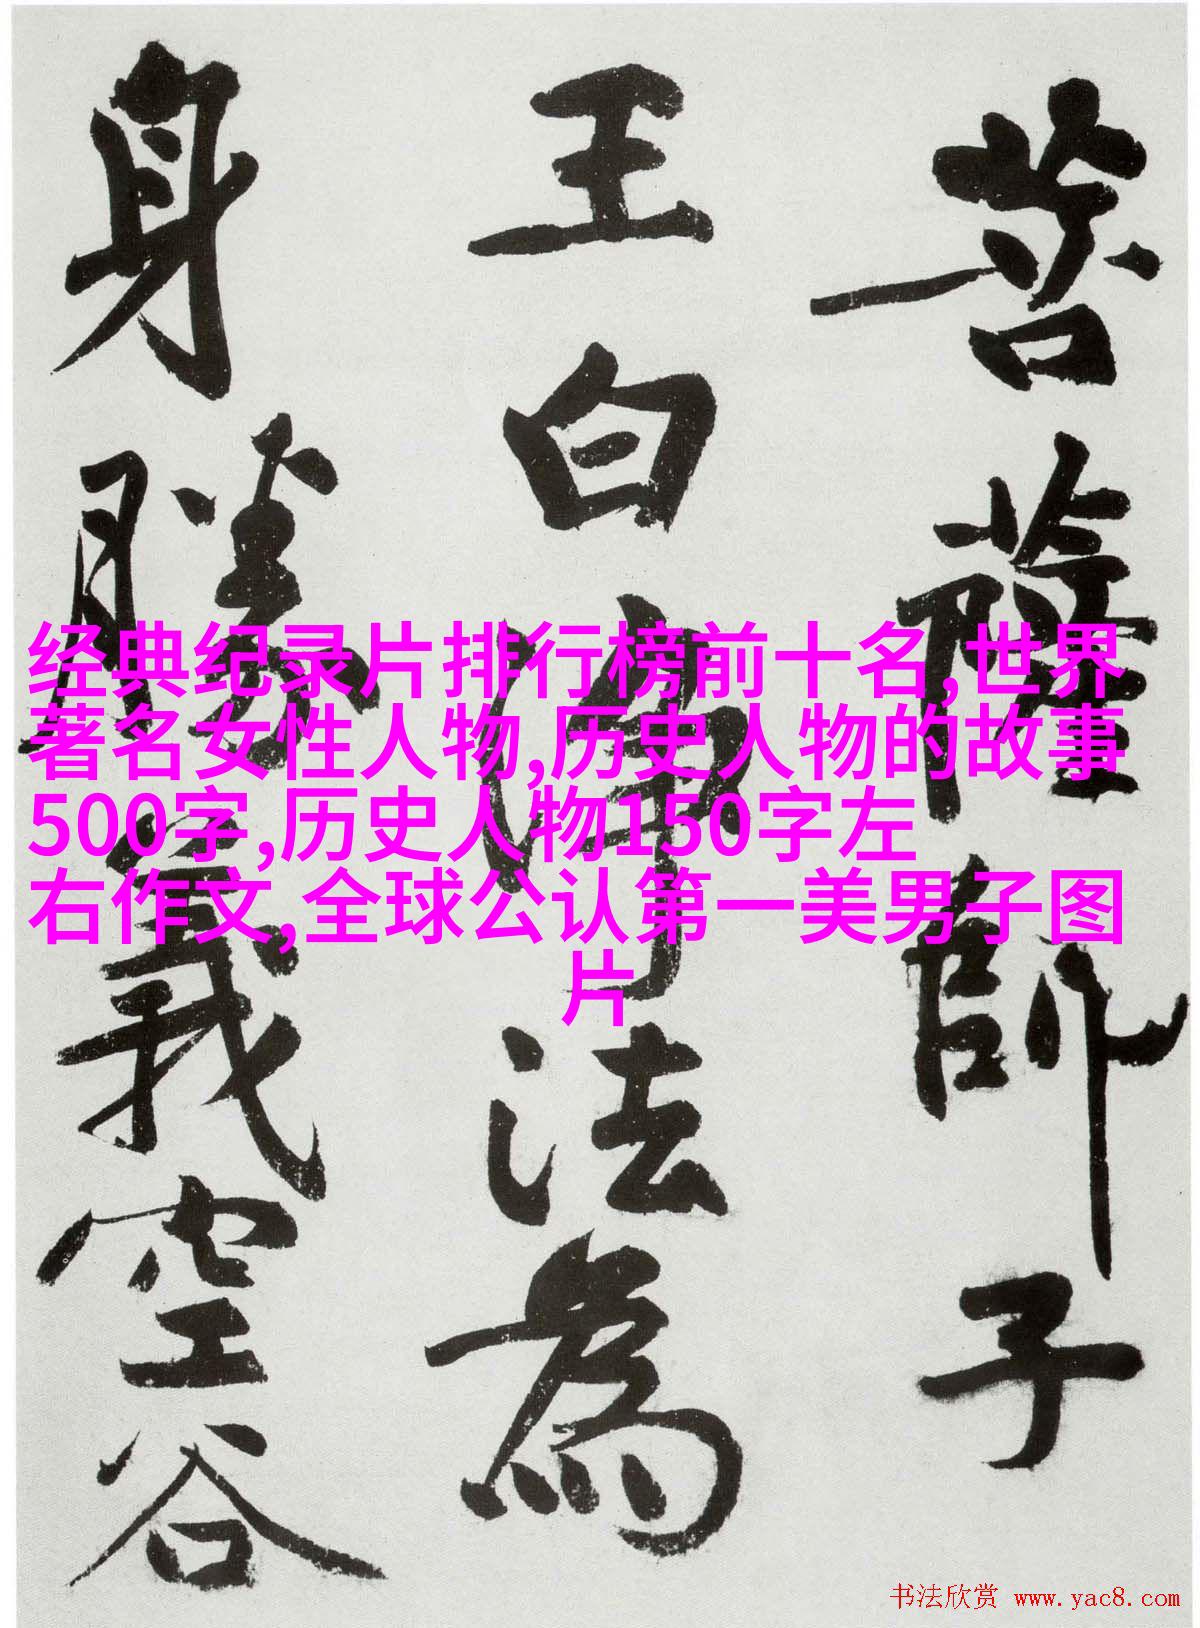 菩薩師子
王白淨法為
身勝義空谷
经典纪录片排行榜前十名,世界
著名女性人物,历史人物的故事
500字,历史人物150字左
右作文,全球公认第一美男子图
片
书法欣赏 www.yac8.com